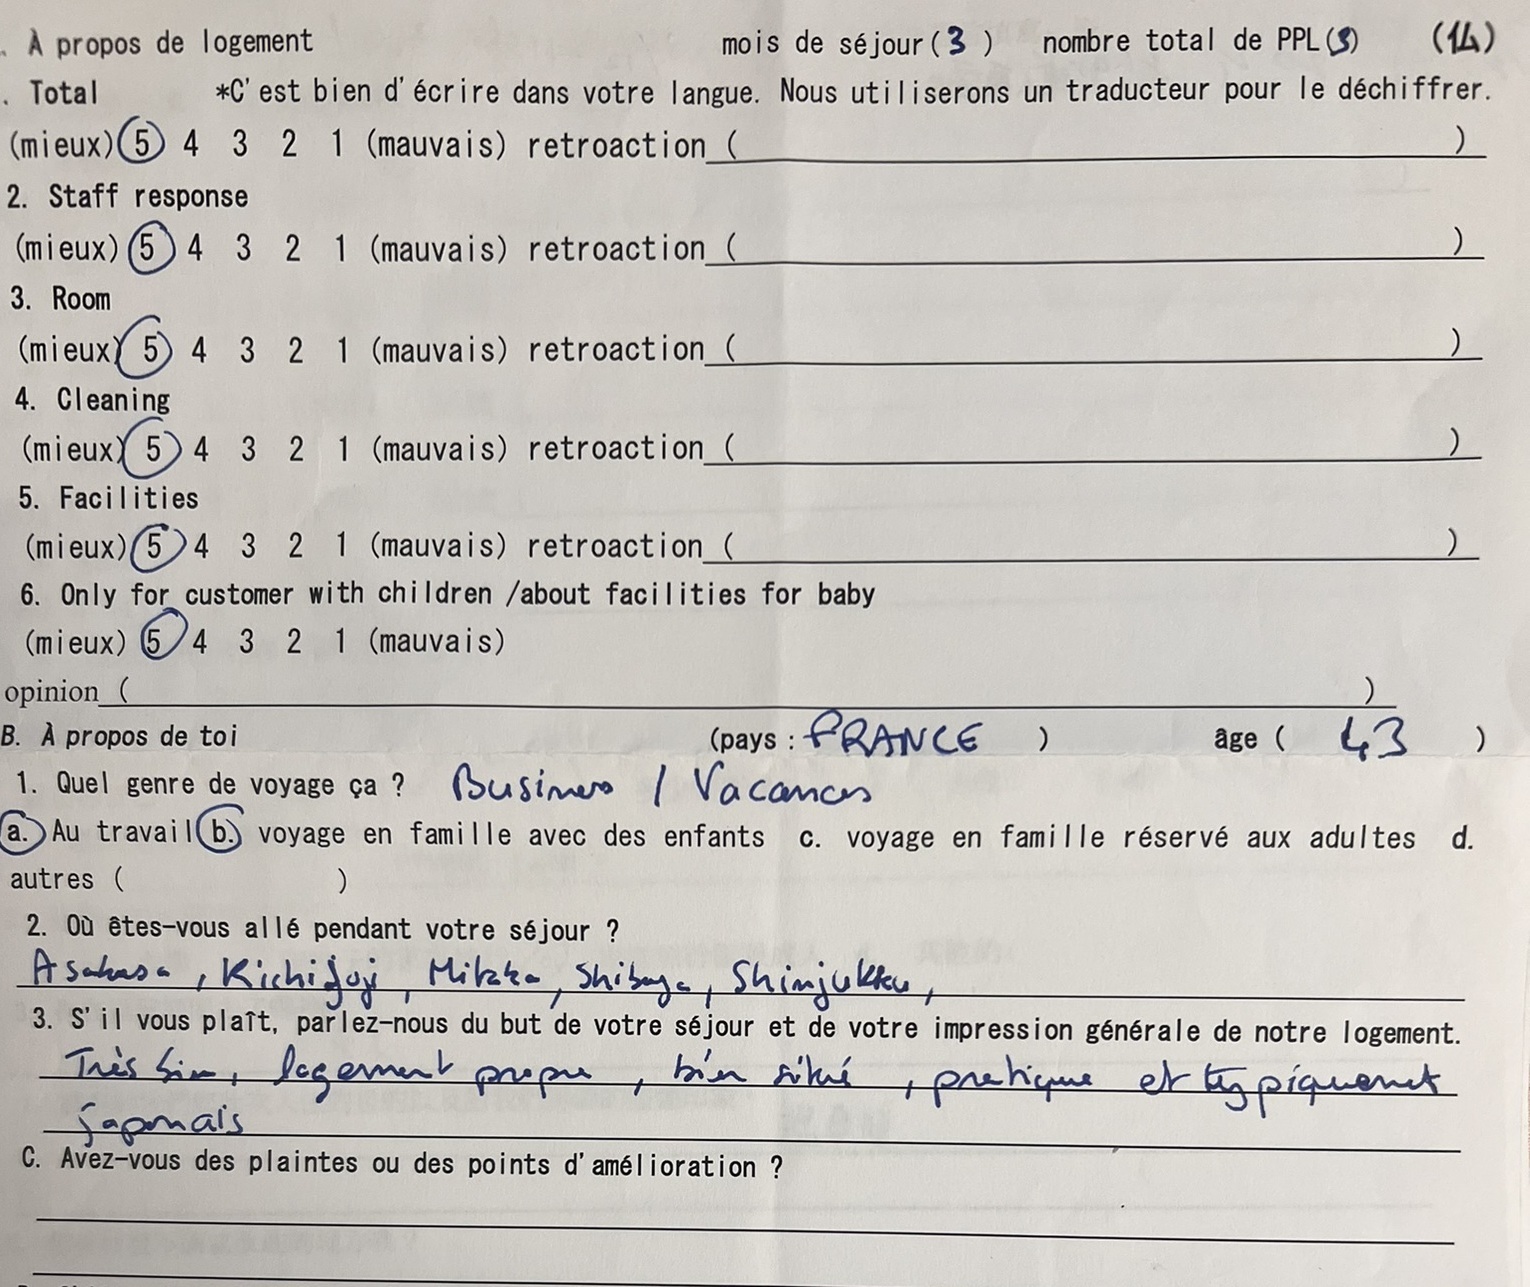 . À propos de logement mois de séjour(3 ) nombre total de PPL(3) (14)
. Total *C'est bien d'écrire dans votre langue. Nous utiliserons un traducteur pour le déchiffrer.
(mieux) 5 4 3 2 1 (mauvais) retroaction ( )
2. Staff response
(mieux) 5 4 3 2 1 (mauvais) retroaction ( )
3. Room
(mieux) 5 4 3 2 1 (mauvais) retroaction ( )
4. Cleaning
(mieux) 5 4 3 2 1 (mauvais) retroaction ( )
5. Facilities
(mieux) 5 4 3 2 1 (mauvais) retroaction ( )
6. Only for customer with children /about facilities for baby
(mieux) 5 4 3 2 1 (mauvais)
opinion ( )
B. À propos de toi (pays : FRANCE ) âge ( 43 )
1. Quel genre de voyage ça ? Business / Vacances
a. Au travail b. voyage en famille avec des enfants c. voyage en famille réservé aux adultes d.
autres ( )
2. Où êtes-vous allé pendant votre séjour ?
Asakusa, Kichijoji, Mitaka, Shibuya, Shinjukku,
3. S'il vous plaît, parlez-nous du but de votre séjour et de votre impression générale de notre logement.
Très bien, logement propre, bien situé, pratique et typiquement
japonais
C. Avez-vous des plaintes ou des points d'amélioration ?